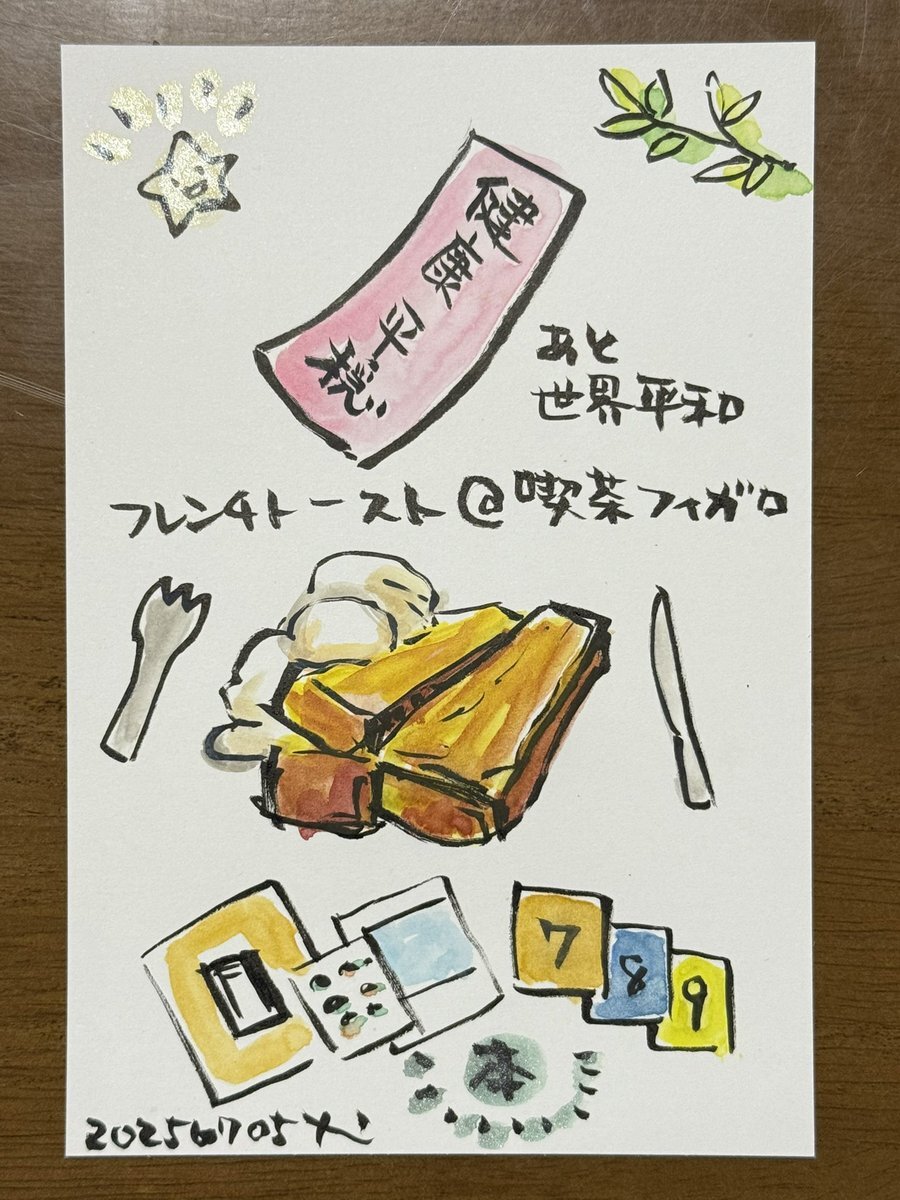 健康平穏
あと
世界平和
フレンチトースト@喫茶フィガロ
7
8
9
本
20250705